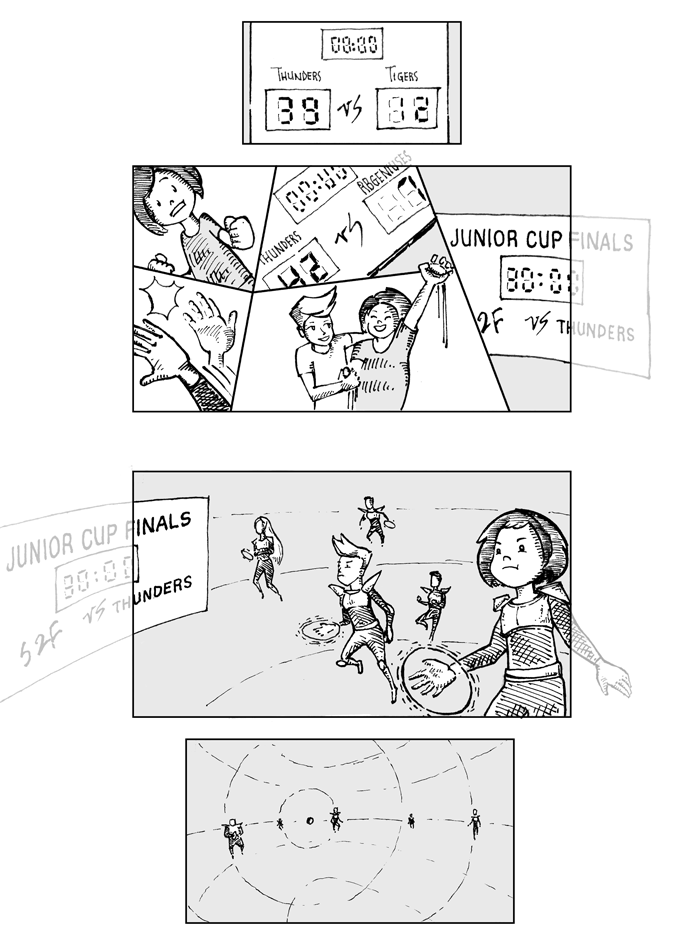 00:00
THUNDERS TIGERS
39 VS 12
00:00
RBGENIUSES
THUNDERS VS
42
JUNIOR CUP FINALS
00:00
S2F VS THUNDERS
JUNIOR CUP FINALS
00:00
S2F VS THUNDERS